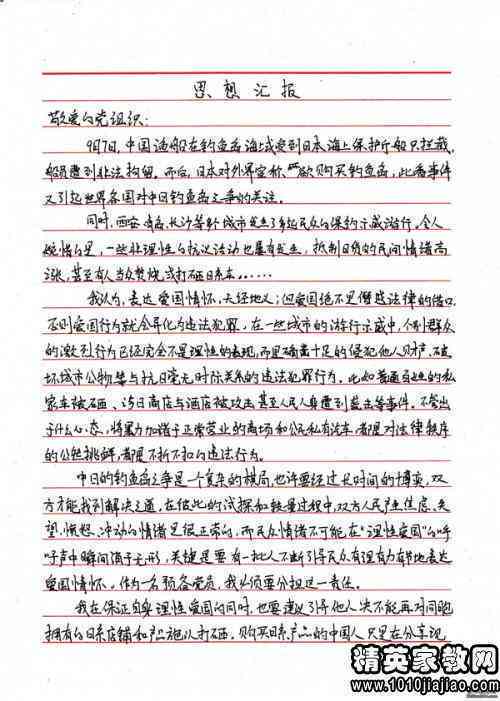 思想汇报
敬爱的党组织：
9月7日，中国渔船在钓鱼岛海域受到日本海上保护厅船只拦截，
船员遭到非法拘留。而后，日本对外界宣称，欲购买钓鱼岛，此番事件
又引起世界各国对中日钓鱼岛之争的关注。
同时，西安、青岛、长沙等外城市发生了多起民众的保钓示威游行。令人
惋惜的是，一些非理性的抗议活动也屡有发生，抵制日货的民间情绪高
涨，甚至有人当众焚烧或打砸日系车……
我认为，表达爱国情怀，天经地义；但爱国绝不是僭越法律的借口，
否则爱国行为就会异化为违法犯罪。在一些城市的游行示威中，个别群众
的激烈行为已经完全不是理性的表现，而是确凿十足的侵犯他人财产、破
坏城市公物等与抗日毫无实际关系的违法犯罪行为。比如普通百姓的私
家车被砸、涉日商店与酒店被攻击甚至人民人身遭到袭击等事件。不管出
于什么心态，将暴力加诸于正常营业的商场和公民私有汽车，都是对法律秩序
的公然挑衅，都是不折不扣的违法行为。
中日的钓鱼岛之争是一个复杂的棋局，也许要经过长时间的博弈，双
方才能找到解决之道，在彼此的试探和较量过程中，双方人民产生焦虑、失
望、愤怒、冲动的情绪是很正常的，而民众情绪不可能在“理性爱国”的呼
吁声中瞬间消于无形，关键是要有一批人不断引导民众有理有力有节地表达
爱国情怀。作为一名预备党员，我必须要分担这一责任。
我在保证自身理性爱国的同时，也要建议引导他人决不能再对同胞
拥有的日系店铺和产品施以打砸。购买日系产品的中国人只是在分享现
精英家教网
www.1010jiajiao.com